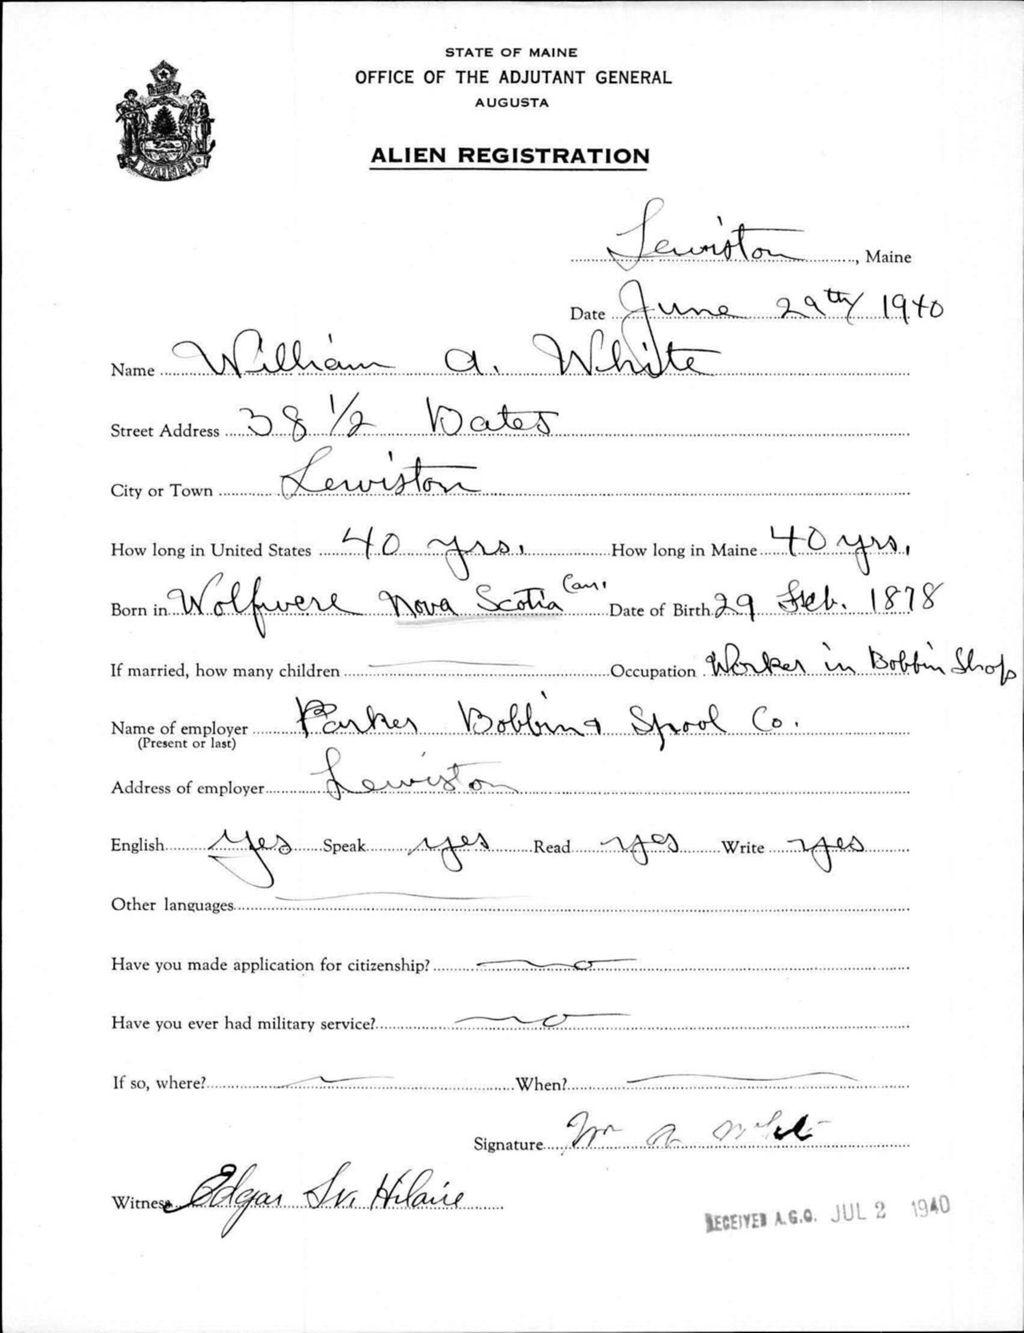 STATE OF MAINE
OFFICE OF THE ADJUTANT GENERAL
AUGUSTA
MAINE
ALIEN REGISTRATION
Lewiston, Maine
Date June 29th 1940
Name William A. White
Street Address 38 1/2 Bates
City or Town Lewiston
How long in United States 40 yrs. How long in Maine 40 yrs.
Born in Wolfvere Nova Scotia Can. Date of Birth 29 Feb. 1878
If married, how many children Occupation Worker in Bobbin Shop
Name of employer Parker Bobbin & Spool Co.
(Present or last)
Address of employer Lewiston
English yes Speak yes Read yes Write yes
Other languages
Have you made application for citizenship? no
Have you ever had military service? no
If so, where? When?
Signature Wm A White
Witness Edgar St. Hilaire
RECEIVED A.G.O. JUL 2 1940